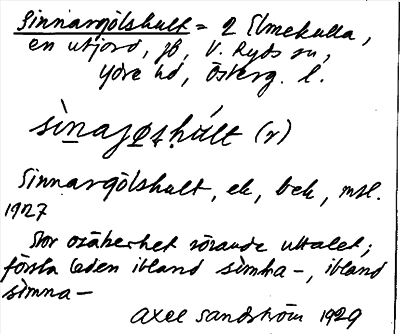 Sinnargölshult = 2 Elmekulla,
en utjord, jb, V. Ryds sn,
Ydre hd, Österg. l.
sìnajǫshúlt (r)
Sinnargölshult, ek, bek, mtl.
1927
Stor osäkerhet rörande uttalet;
första leden ibland simha-, ibland
simna-
Axel Sandström 1929